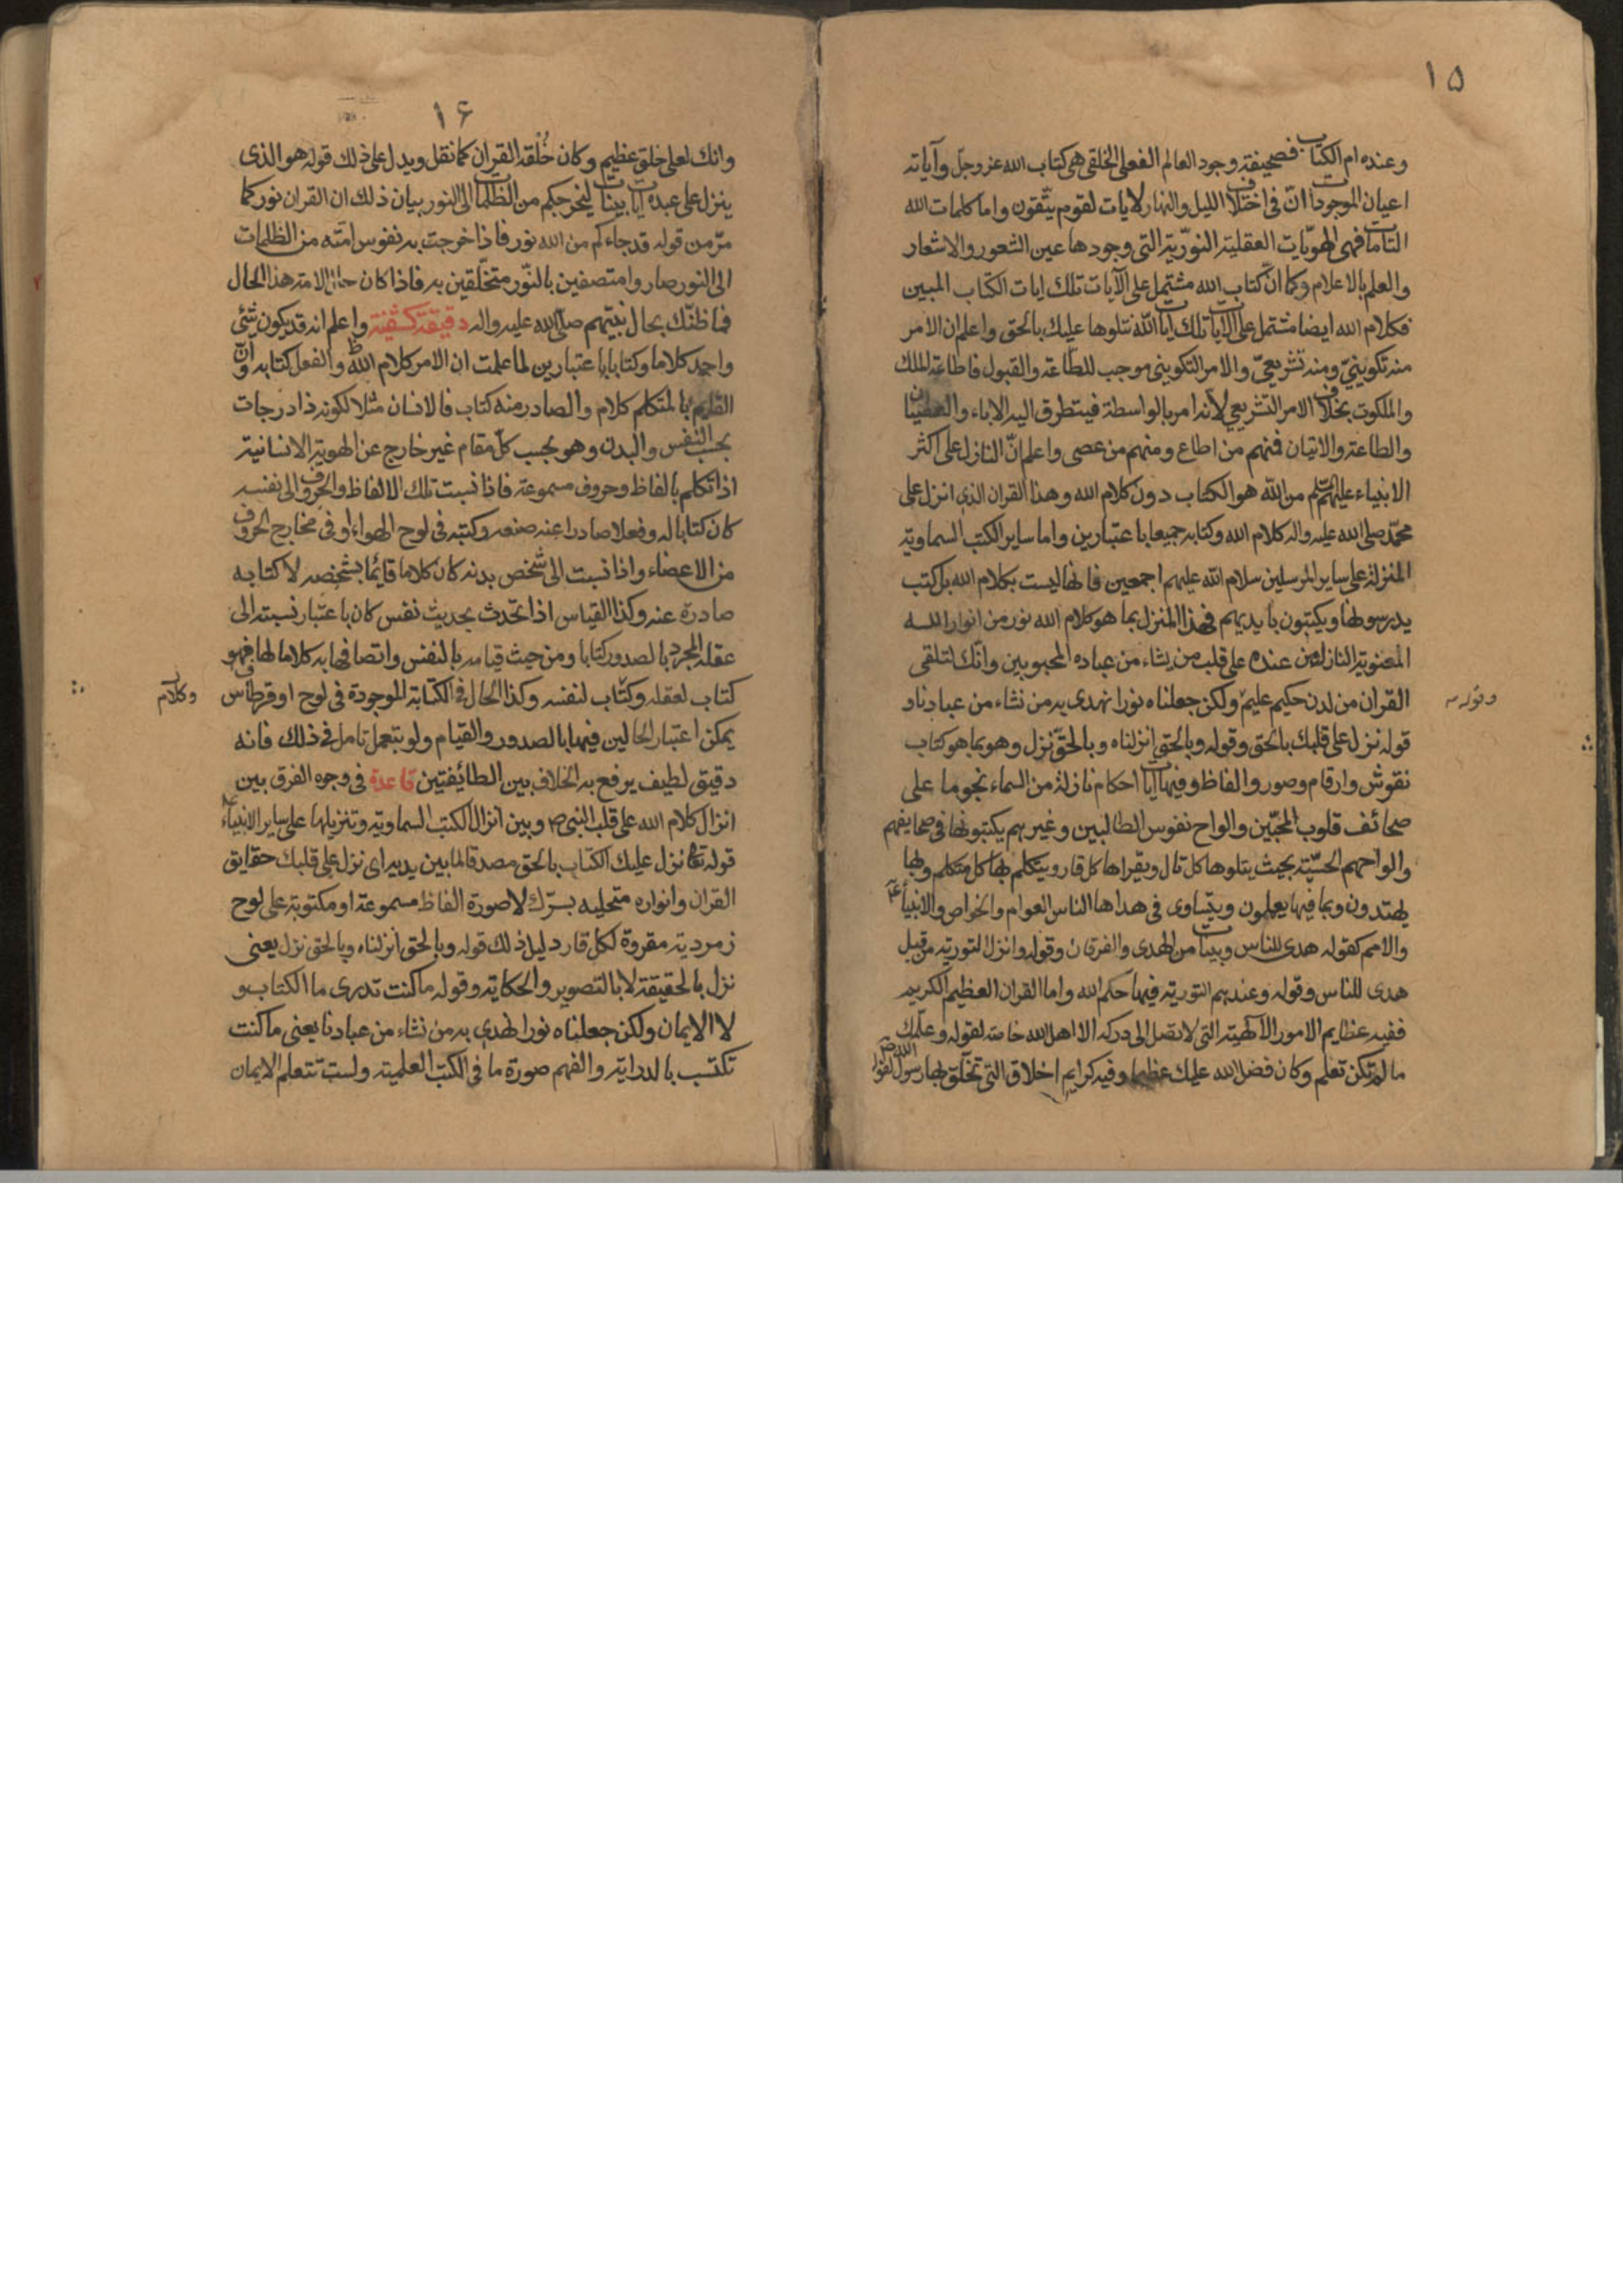 ١٥
وعنده ام الكتاب فصحيفة وجود العالم الفعلى الخلقى هى كتاب الله عز وجلّ وآياته
اعيان الموجودات انّ فى اختلاف الليل والنهار لايات لقوم يتّقون واما كلمات الله
التامات فهى الهويّات العقلية النوّرية التى وجودها عين الشعور والاشعار
والعلم بالاعلام وكما انّ كتاب الله مشتمل على الآيات تلك ايات الكتاب المبين
فكلام الله ايضا مشتمل على الايات تلك ايات الله نتلوها عليك بالحق واعلم ان الامر
منه تكوينىّ ومنه تشريعىّ والامر التكوينى موجب للطّاعة والقبول فاطاعة الملك
والملكوت بخلاف الامر التشريعى لانه امر بالواسطة فيتطرق اليه الاباء والعصيان
والطاعة والاتيان فمنهم من اطاع ومنهم من عصى واعلم انّ النازل على اكثر
الانبياء عليهم السّلم من الله هو الكتاب دون كلام الله وهذا القران الذى انزل على
محمّد صلى الله عليه واله كلام الله وكتابه جميعا باعتبارين واما ساير الكتب السماويّة
المنزلة على ساير المرسلين سلام الله عليهم اجمعين فانها ليست بكلام الله بل كتب
يدرسونها ويكتبون بايديهم فهذا المنزل بما هو كلام الله نور من انوار الله
المعنوية النازل من عنده على قلب من يشاء من عباده المحبوبين وانّك لتلقى
القران من لدن حكيم عليم ولكن جعلناه نورا نهدى به من نشاء من عبادنا و
وقوله
قوله نزل على قلبك بالحق وقوله وبالحق انزلناه وبالحقّ نزل وهو بما هو كتاب
نقوش وارقام وصور والفاظ وفيها ايات احكام نازلة من السماء نجوما على
صحائف قلوب المحبّين والواح نفوس الطالبين وغيرهم يكتبونها فى صحايفهم
والواحهم الحسّيّة بحيث يتلوها كل تال ويقراها كل قار ويتكلم بها كل متكلم وبها
يهتدون وبما فيها يعملون ويتساوى فى هداها الناس العوام والخواص والانبياء
والامم كقوله هدى للناس وبينات من الهدى والفرقان وقوله وانزل التورية من قبل
هدى للناس وقوله وعندهم التورية فيها حكم الله واما القران العظيم الكريم
ففيه عظايم الامور الآلهية التى لا يصل الى دركه الا اهل الله خاصة لقوله وعلّمك
ما لم تكن تعلم وكان فضل الله عليك عظيما وفيه كرايم اخلاق التى تخلّق بها رسول الله ص لقوله
١٦
وانك لعلى خلق عظيم وكان خُلْقه القران كما نقل ويدل على ذلك قوله هو الذى
ينزل على عبده ايات بينات ليخرجكم من الظلمات الى النور بيان ذلك ان القران نور كما
مرّ من قوله قد جاءكم من الله نور فاذا خرجت به نفوس امّته من الظلمات
الى النور صاروا متصفين بالنّور متخلّقين به فاذا كان حال الامة هذا الحال
فما ظنّك بحال نبيّهم صلى الله عليه واله دقيقة كشفية واعلم انه قد يكون شئى
واحد كلاما وكتابا باعتبارين لما علمت ان الامر كلام الله والفعل كتابه وانّ
القايم بالمتكلم كلام والصادر منه كتاب فالانسان مثلا لكونه ذا درجات
بحسب النفس والبدن وهو بحسب كلّ مقام غير خارج عن الهوية الانسانية
اذا تكلم بالفاظ وحروف مسموعة فاذا نسبت تلك الالفاظ والحروف الى نفسه
كان كتابا له وفعلا صادرا عنه صنعه وكتبه فى لوح الهواء او فى مخارج الحروف
من الاعضاء واذا نسبت الى شخص بدنه كان كلاما قايمًا بشخصه لا كتابه
صادرة عنه وكذا القياس اذا تحّدث بحديث نفس كان باعتبار نسبته الى
عقله المجرد بالصدور كتابا ومن حيث قيامه بالنفس واتصافها به كلاما لها فهو
كتاب لعقله وكتاب لنفسه وكذا الحال فى الكتابة الموجودة فى لوح او قرطاس فى
وكلام
يمكن اعتبار الحالين فيها بالصدور والقيام ولو بتعمل تامل فى ذلك فانه
دقيق لطيف يرفع به الخلاف بين الطائفتين قاعدة فى وجوه الفرق بين
انزال كلام الله على قلب النبى ص وبين انزال الكتب السماوية وتنزيلها على ساير الانبياء
قوله تعا نزل عليك الكتاب بالحق مصدقا لما بين يديه اى نزل على قلبك حقايق
القران وانواره متجليه بسرّك لا صورة الفاظ مسموعة او مكتوبة على لوح
زمردية مقروة لكل قار دليل ذلك قوله وبالحق انزلناه وبالحق نزل يعنى
نزل بالحقيقة لا بالتصوير والحكاية وقوله ما كنت تدرى ما الكتاب و
لا الايمان ولكن جعلناه نورا نهدى به من نشاء من عبادنا يعنى ما كنت
تكتسب بالدراية والفهم صورة ما فى الكتب العلمية ولست تتعلم الايمان